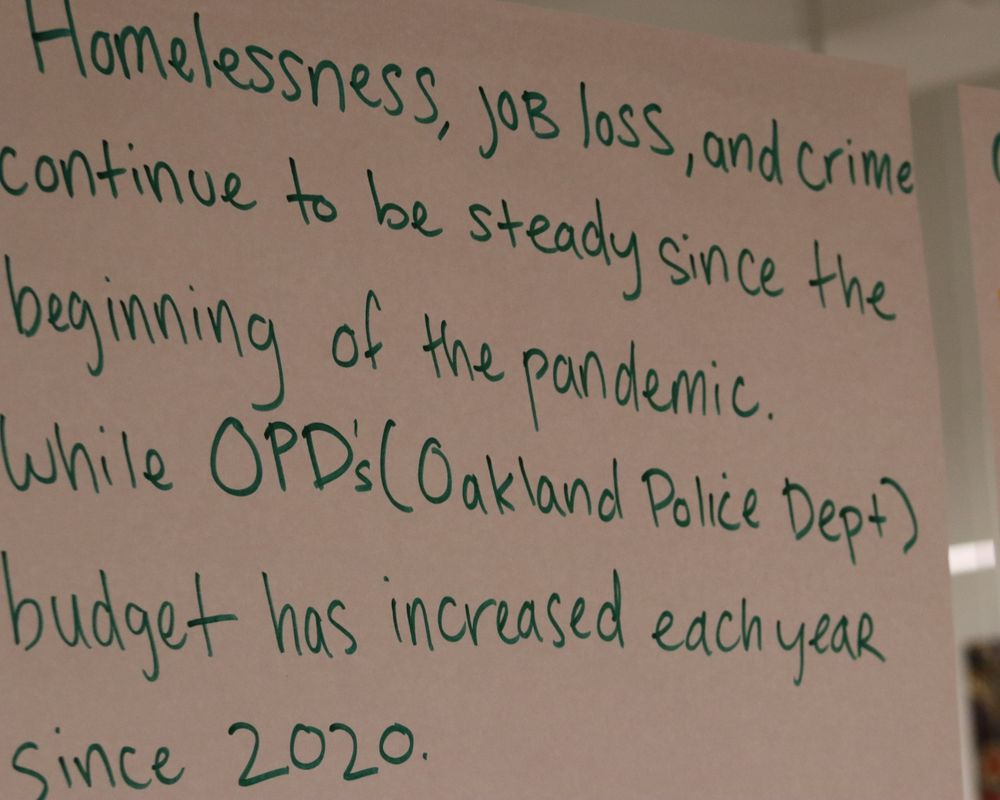 Homelessness, JOB loss, and crime
continue to be steady since the
beginning of the pandemic.
While OPD's (Oakland Police Dept)
budget has increased each year
since 2020.